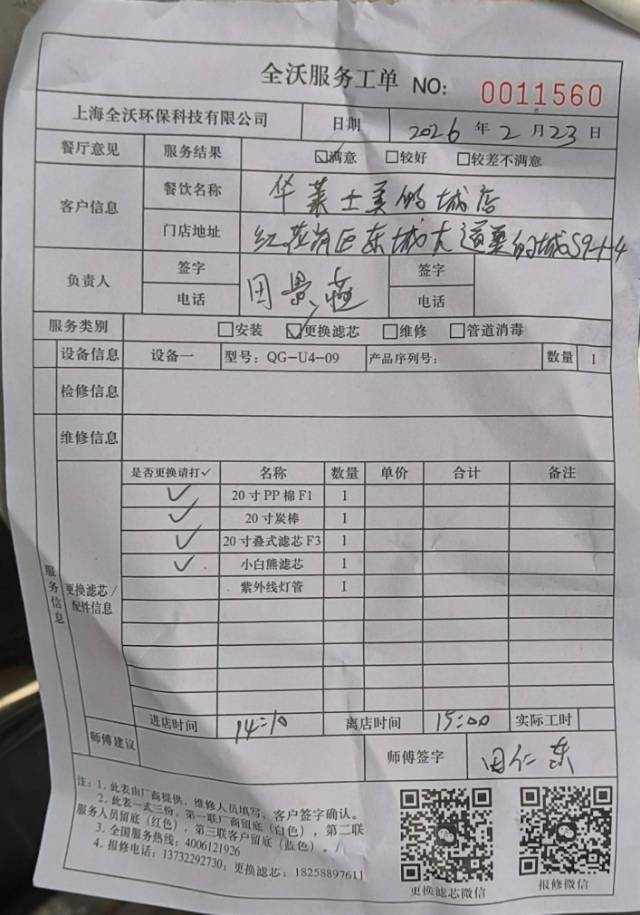 全沃服务工单 NO: 0011560
上海全沃环保科技有限公司 日期 2026 年 2 月 23 日
餐厅意见 服务结果 ☑满意 □较好 □较差不满意
客户信息 餐饮名称 华莱士美的城店
门店地址 红花岗区东城大道美的城S9-1-4
负责人 签字 田景 签字
电话 电话
服务类别 □安装 ☑更换滤芯 □维修 □管道消毒
设备信息 设备一 型号: QG-U4-09 产品序列号: 数量 1
检修信息
维修信息
服务信息
更换滤芯/配件信息
是否更换请打✓ 名称 数量 单价 合计 备注
✓ 20寸PP棉F1 1
✓ 20寸炭棒 1
✓ 20寸叠式滤芯F3 1
✓ 小白熊滤芯 1
紫外线灯管 1
进店时间 14:10 离店时间 15:00 实际工时
师傅建议 师傅签字 田仁东
注: 1. 此表由厂商提供, 维修人员填写, 客户签字确认。
2. 此表一式三份, 第一联厂商留底(白色), 第二联
服务人员留底(红色), 第三联客户留底(蓝色)。
3. 全国服务热线: 4006121926
4. 报修电话: 13732292730; 更换滤芯: 18258897611
更换滤芯微信 报修微信